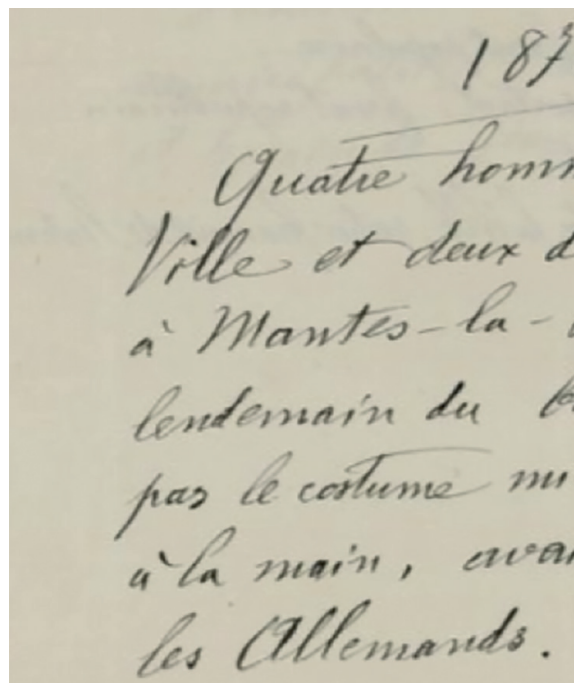 187
Quatre hom
Ville et deux d
à Mantes-la-
lendemain du
pas le costume
à la main, avai
les Allemands.